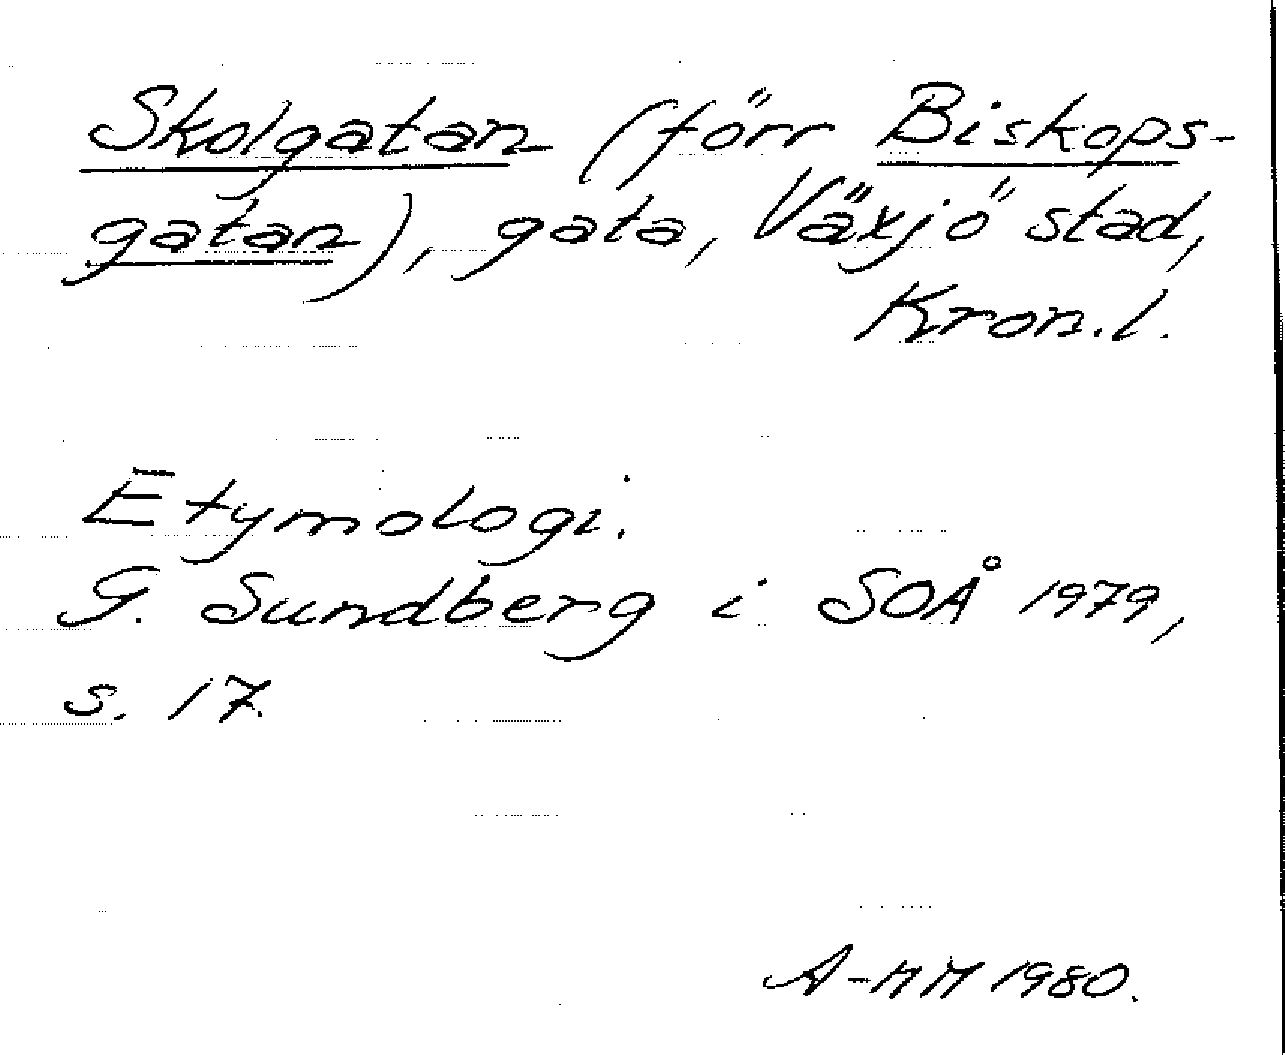 Skolgatan (förr Biskops-
gatan), gata, Växjö stad,
Kron.l.
Etymologi.
G. Sundberg i SOÅ 1979,
s. 17.
A-MM 1980.